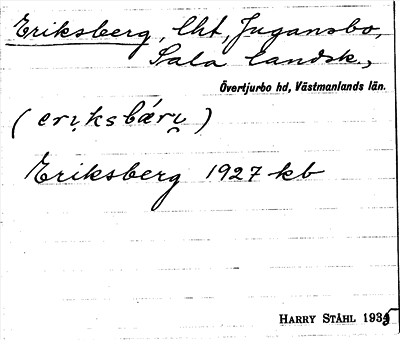 Eriksberg, lht, Jugansbo,
Sala landsk.,
Övertjurbo hd, Västmanlands län.
(eriksbárị)
Eriksberg 1927 kb
HARRY STÅHL 1935